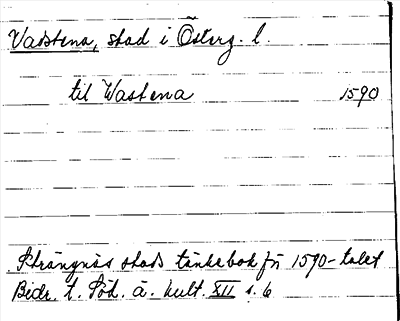 Vadstena, stad i Österg. l.
til Wastena 1590
Strängnäs stads tänkebok fr 1590-talet
Bidr. t. Söd. ä. kult. XII s. 6